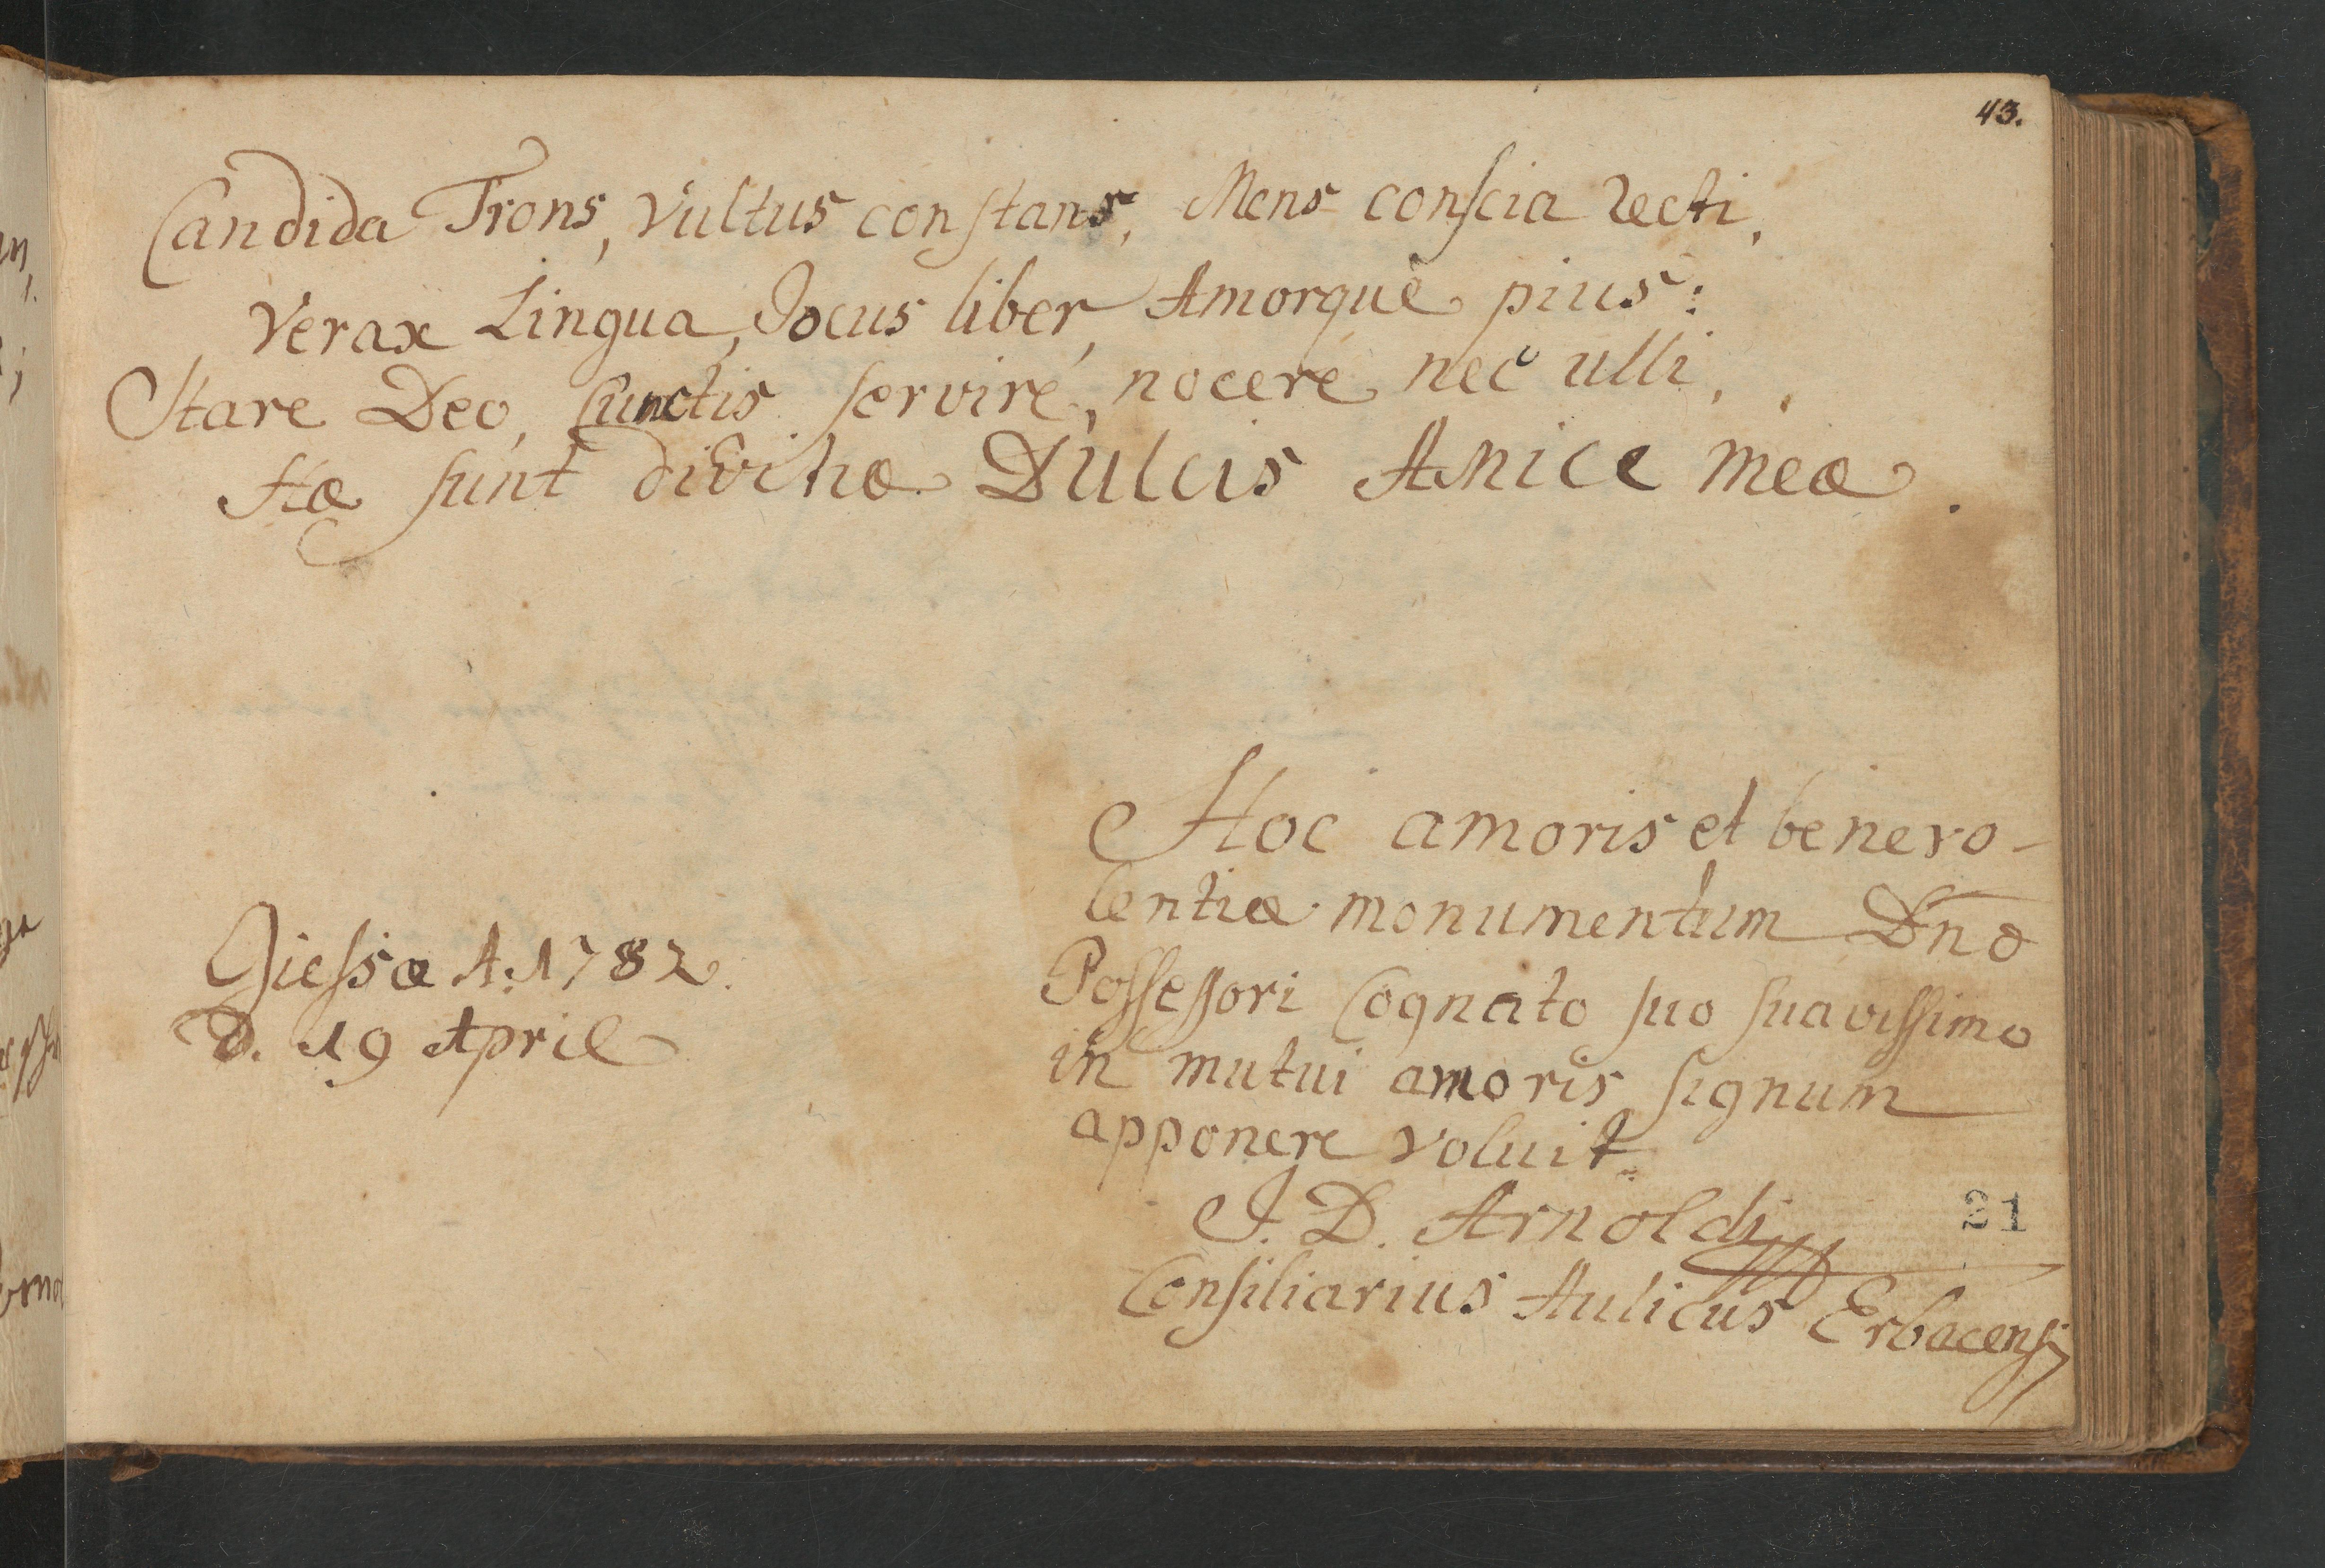 43.
Candida Frons, Vultus constans, Mens conscia recti,
Verax Lingua, Jocus liber, Amorque pius:
Stare Deo, Cunctis servire, nocere nec ulli,
Hæ sunt divitiæ Dulcis Amice meæ.
Hoc amoris et benevo-
lentiæ monumentum Dno
Possessori Cognato suo suavissimo
in mutui amoris signum
apponere voluit
J. D. Arnoldi
Consiliarius Aulicus Erbacensis
Giessæ A. 1782.
D. 19 April
21